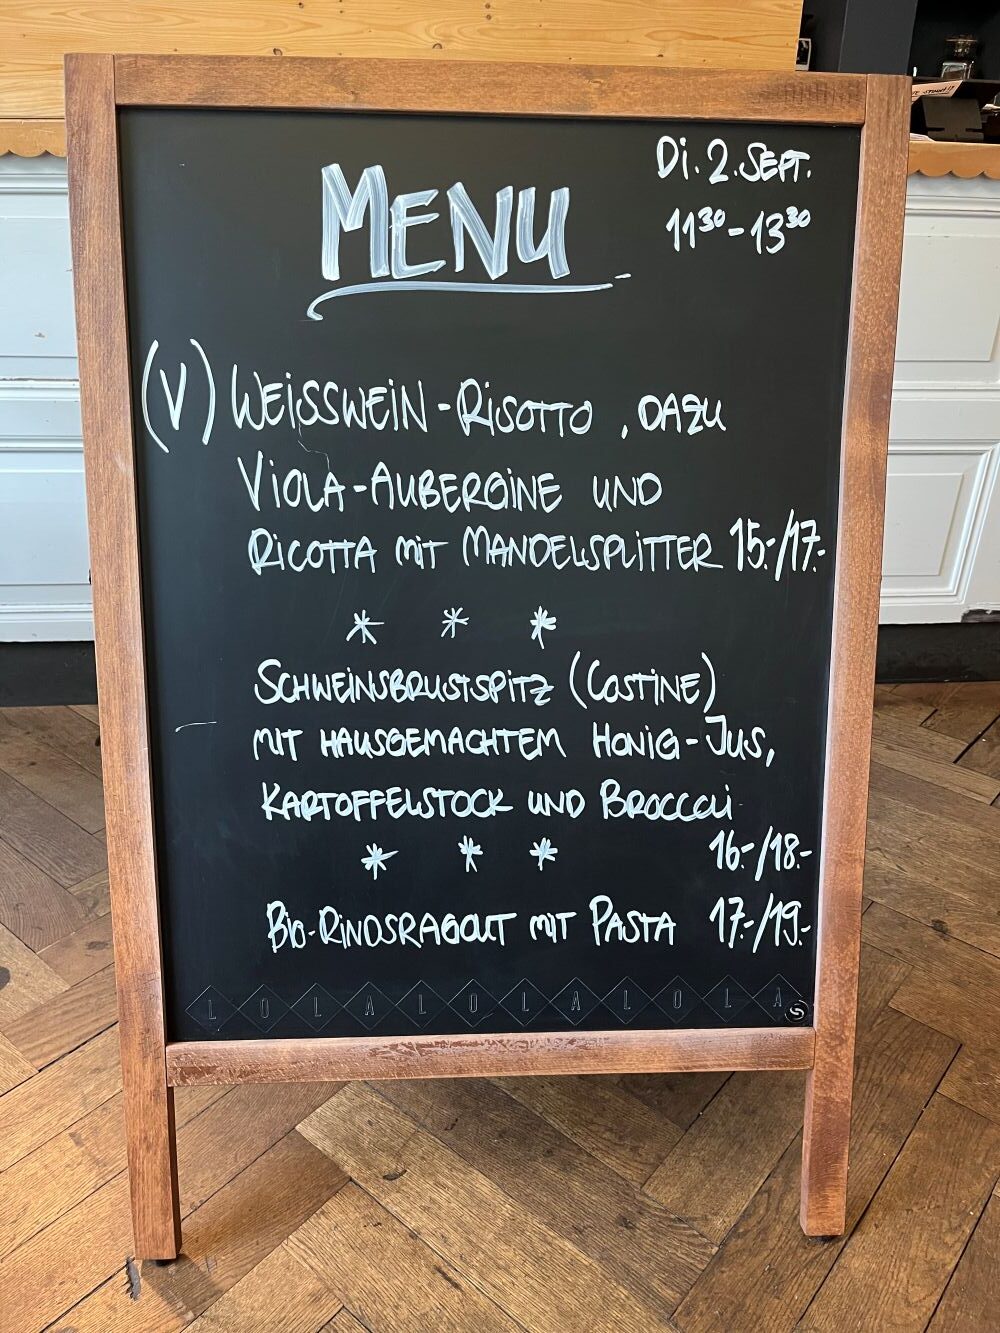 MENU
Di. 2. SEPT.
11³⁰-13³⁰
(V) WEISSWEIN-RISOTTO, DAZU
VIOLA-AUBERGINE UND
RICOTTA MIT MANDELSPLITTER 15.-/17.-
* * *
SCHWEINSBRUSTSPITZ (COSTINE)
MIT HAUSGEMACHTEM HONIG-JUS,
KARTOFFELSTOCK UND BROCCOLI
16.-/18.-
* * *
BIO-RINDSRAGOUT MIT PASTA 17.-/19.-
LOLALOLALOLA